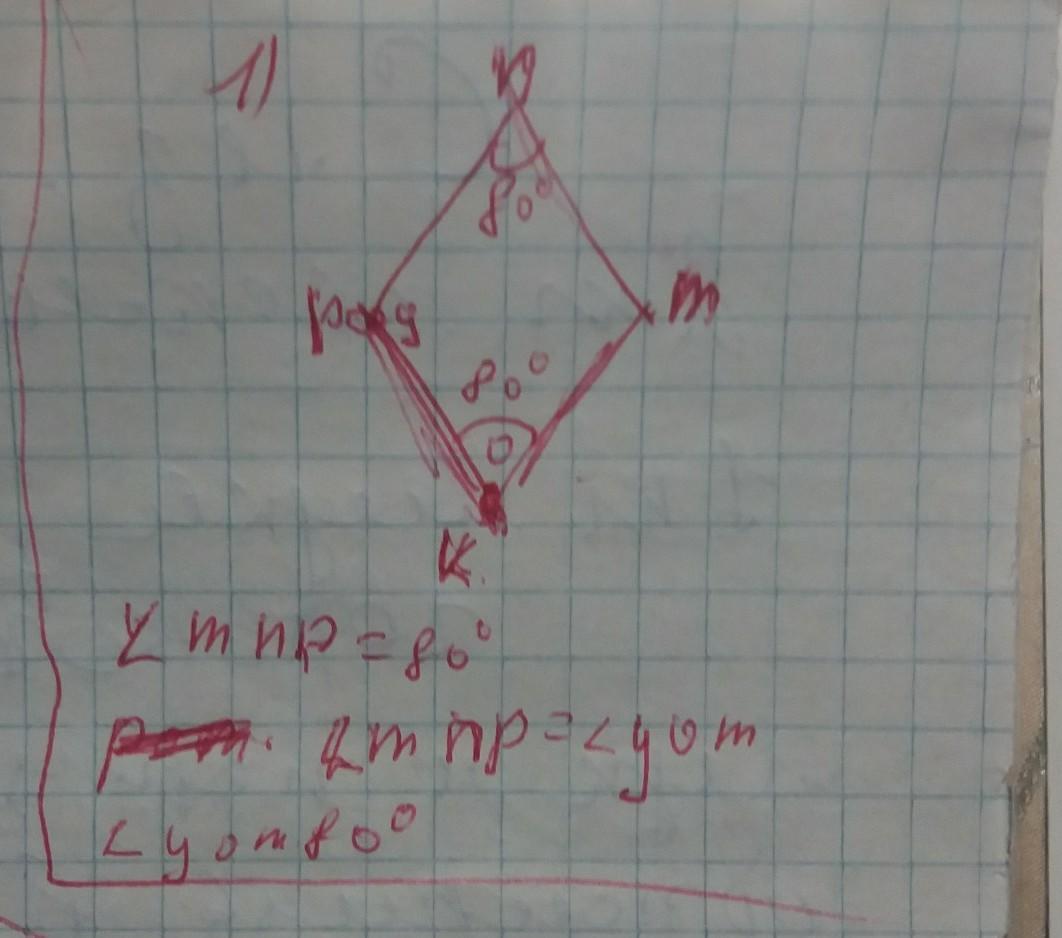 1)
n
80°
p y m
80°
O
K
∠mnp=80°
∠mnp=<yom
<yom80°